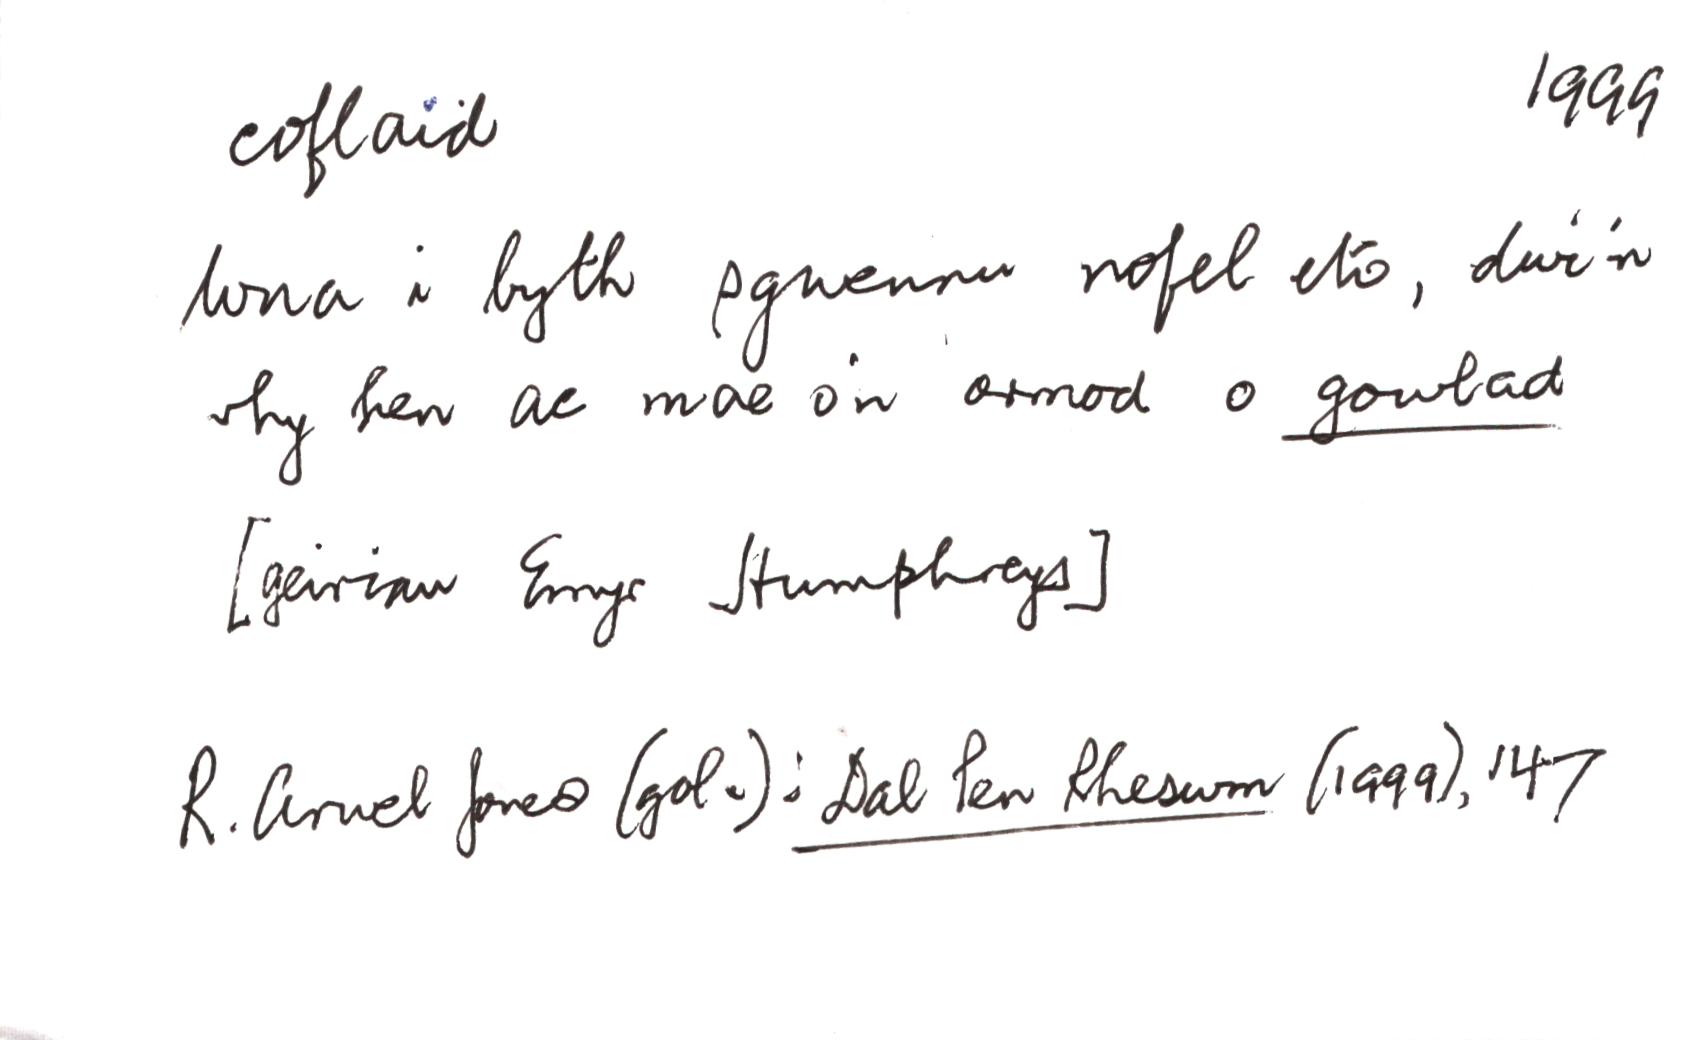 coflaid 1999
Wna i byth sgwennu nofel eto, dwi'n
rhy hen ac mae o'n ormod o gowlad
[geiriau Emyr Humphreys]
R. Arwel Jones (gol.): Dal Pen Rheswm (1999), 147